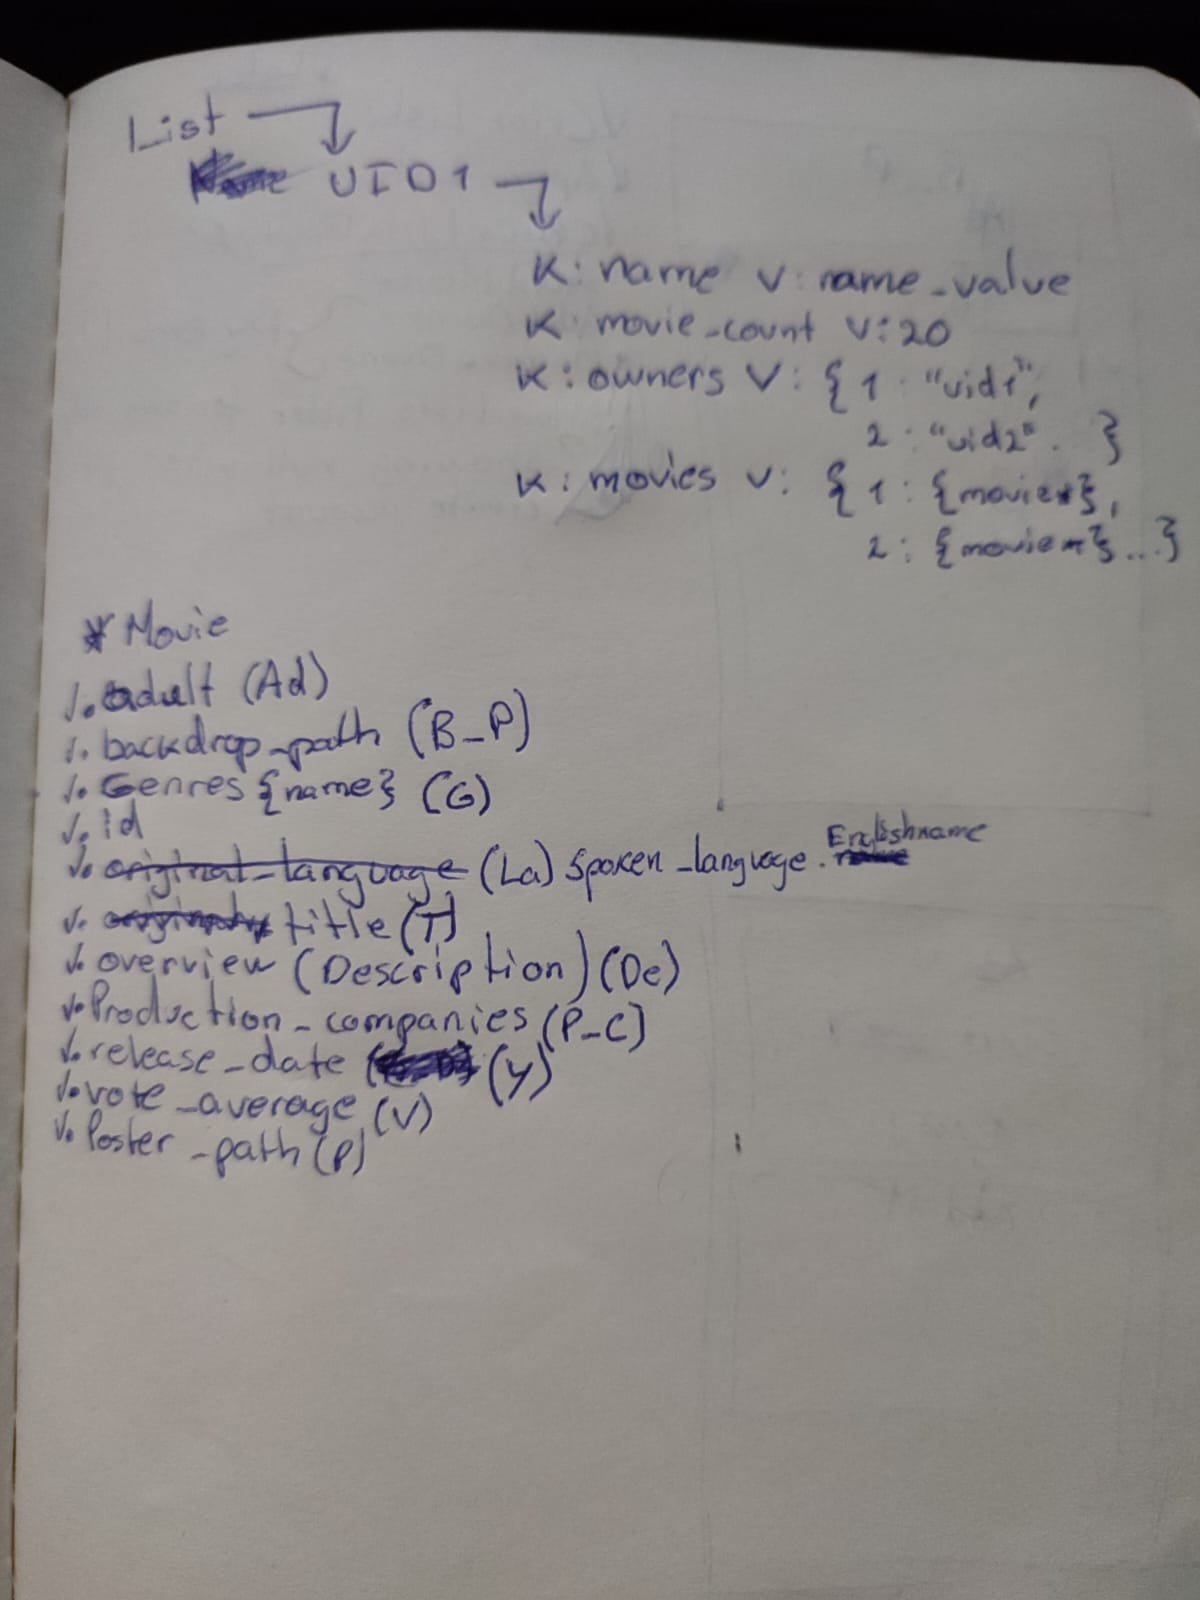 List
UID1
K: name V: name_value
K: movie_count V: 20
K: owners V: { 1 : "uid1",
2 : "uid2" . }
K: movies V: { 1 : {movie*},
2 : {movie*} ...}
* Movie
√. adult (Ad)
√. backdrop_path (B_P)
√. Genres {name} (G)
√. id
Englishname
√. original_language (La) Spoken_language.
√. title (T)
√. overview (Description) (De)
√. Production_companies (P_C)
√. release_date (Y)
√. vote_average (V)
√. Poster_path (P)